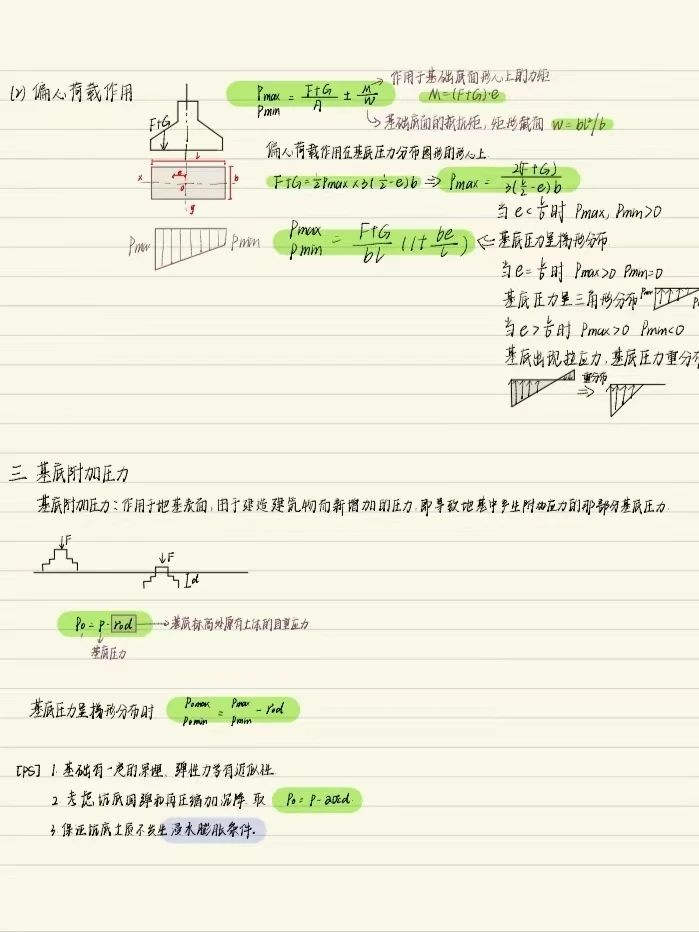 (2) 偏心荷载作用
Pmax
Pmin = F+G/A ± M/W
作用于基础底面形心上的力矩
M=(F+G)·e
基础底面的抵抗矩, 矩形截面 W=bl²/6
偏心荷载作用在基底压力分布图形的形心上
F+G=½Pmax×3(l/2-e)b ⇒ Pmax = 2(F+G)/3(l/2-e)b
F+G
l
x
e
o
b
y
Pmax
Pmin
Pmax
Pmin = F+G/bl (1± 6e/l)
当e<l/6时 Pmax, Pmin>0
基底压力呈梯形分布
当e=l/6时 Pmax>0 Pmin=0
基底压力呈三角形分布 Pmax
当e>l/6时 Pmax>0 Pmin<0
基底出现拉应力, 基底压力重分布
重分布
⇒
三 基底附加压力
基底附加压力: 作用于地基表面, 由于建造建筑物而新增加的压力, 即导致地基中产生附加应力的那部分基底压力.
F
F
d
P0 = P - r0d → 基底标高处原有土体的自重应力
基底压力
基底压力呈梯形分布时 P0max
P0min = Pmax
Pmin - r0d
[PS] 1. 基础有一定的深埋、弹性力学有近似性
2. 考虑坑底回弹和再压缩加沉降 取 P0 = P -
3. 保证坑底土质不发生浸水膨胀条件.